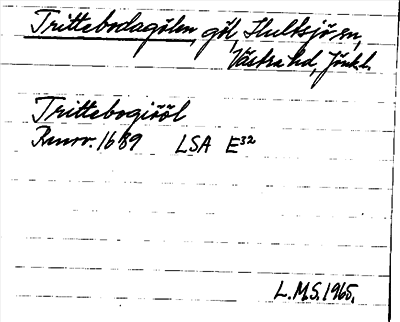 Trittebodagölen, göl, Hultsjö sn,
Västra hd, Jönk. l.
Trittebogiööl
Renov. 1689 LSA E32
L.M.S. 1965.